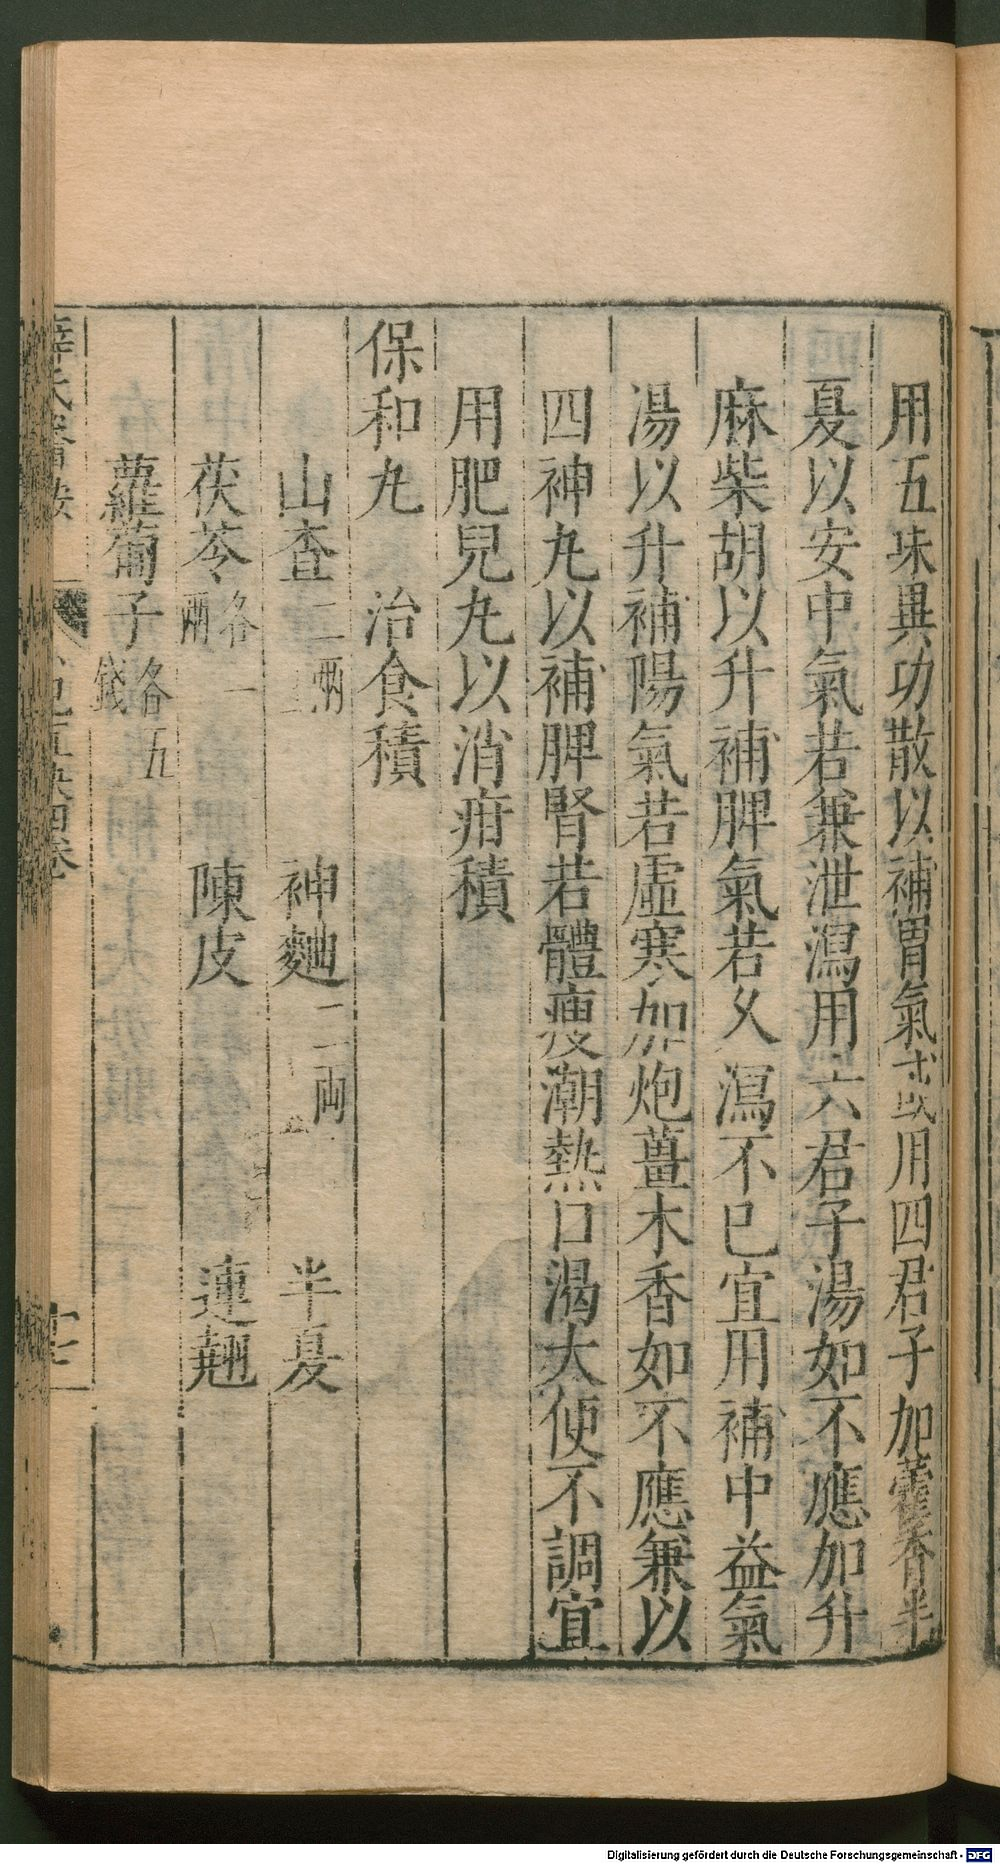 用五味異功散以補胃氣或用四君子加藿香半
夏以安中氣若兼泄瀉用六君子湯如不應加升
麻柴胡以升補脾氣若久瀉不已宜用補中益氣
湯以升補陽氣若虛寒加炮薑木香如不應兼以
四神丸以補脾腎若體瘦潮熱口渴大便不調宜
用肥兒丸以消疳積
保和丸 治食積
山査二兩 神麯二兩 半夏
茯苓各一兩 陳皮 連翹
蘿蔔子各五錢
Digitalisierung gefördert durch die Deutsche Forschungsgemeinschaft - DFG